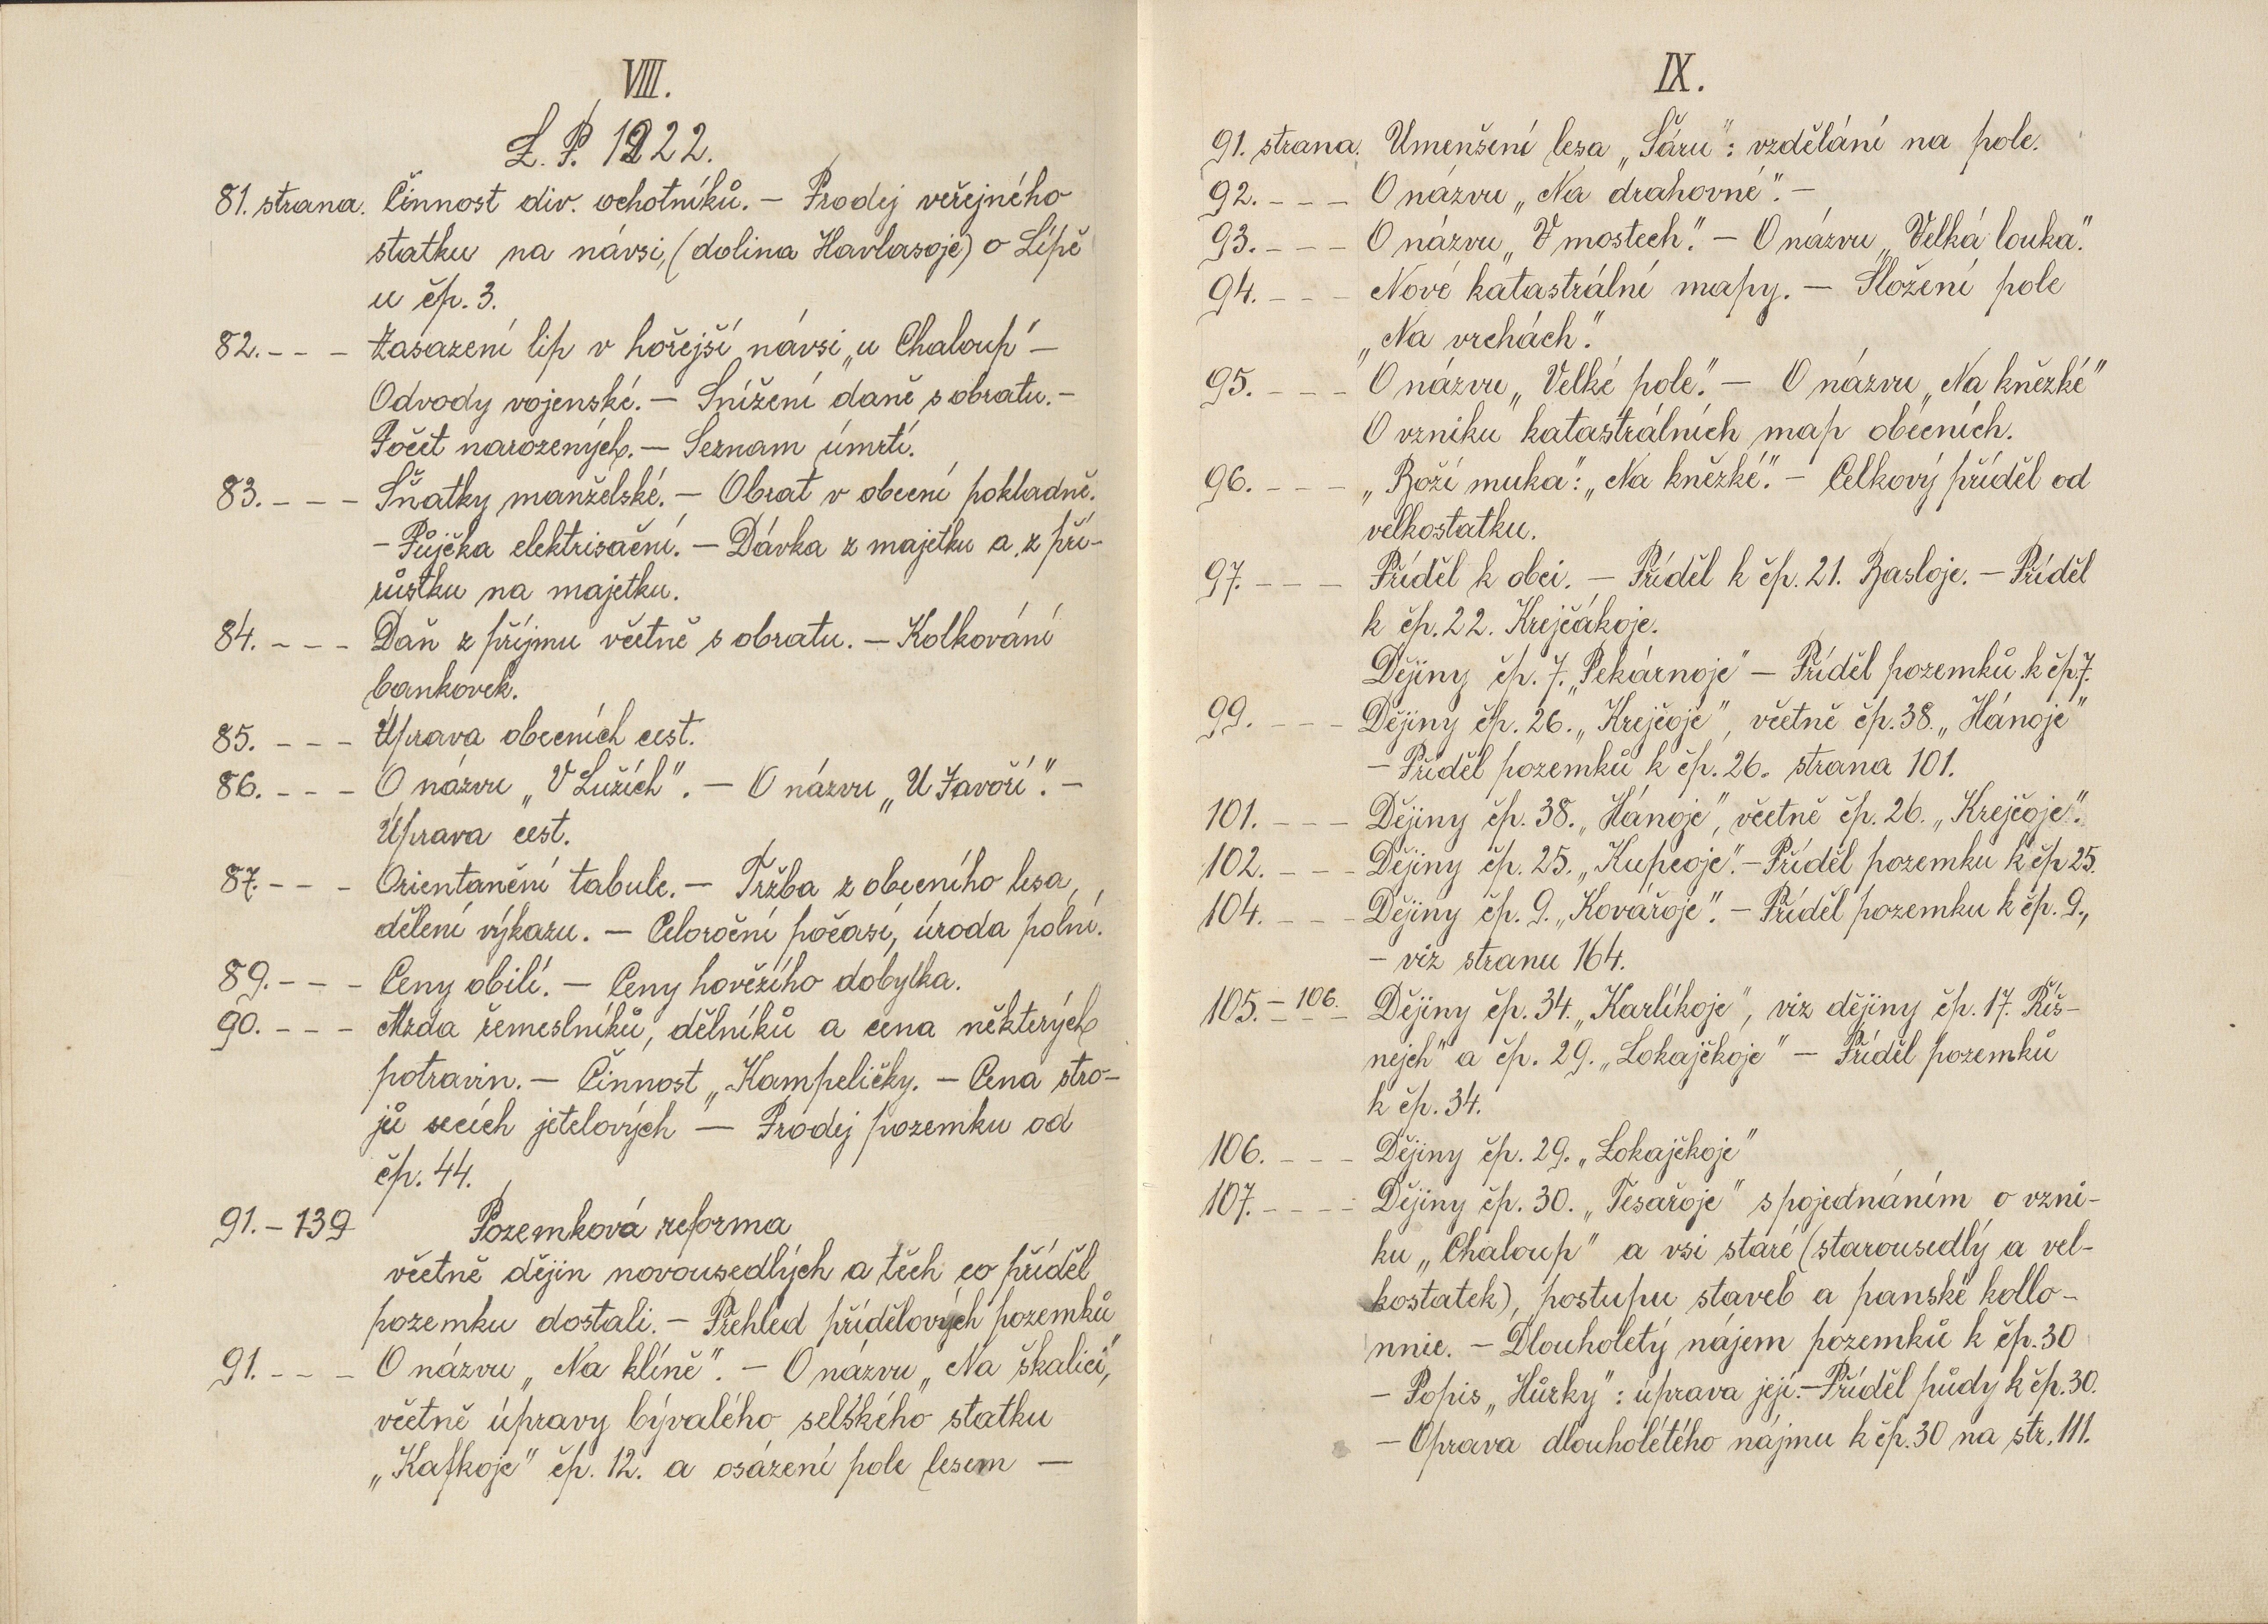 VIII.
L. P. 1922.
81. strana. Činnost div. ochotníků. — Prodej veřejného
statku na návsi, (dolina Havlasoje) o Lípě
u čp. 3.
82. - - - Zasazení lip v hořejší návsi „u Chaloup" —
Odvody vojenské. — Snížení daně s obratu. —
Počet narozených. — Seznam úmrtí.
83. - - - Sňatky manželské. — Obrat v obecní pokladně.
— Půjčka elektrisační. — Dávka z majetku a z pří-
růstku na majetku.
84. - - - Daň z příjmu včetně s obratu. — Kolkování
bankovek.
85. - - - Úprava obecních cest.
86. - - - O názvu „V Lužích". — O názvu „U Javoří". —
Úprava cest.
87. - - - Orientanění tabule. — Tržba z obecního lesa,
dělení výkazu. — Celoroční počasí, úroda polní.
89. - - - Ceny obilí. — Ceny hovězího dobytka.
90. - - - Mzda řemeslníků, dělníků a cena některých
potravin. — Činnost „Kampeličky. — Cena stro-
jů secích jetelových — Prodej pozemku od
čp. 44.
91. - 139 Pozemková reforma
včetně dějin novousedlých a těch co příděl
pozemku dostali. — Přehled přídělových pozemků
91. - - - O názvu „Na klíně". — O názvu „Na škalici",
včetně úpravy bývalého selského statku
„Kafkoje" čp. 12. a osázení pole lesem —
IX.
91. strana. Umenšení lesa „Šáru": vzdělání na pole.
92. - - - O názvu „Na drahovné". —
93. - - - O názvu „V mostech". — O názvu „Velká louka".
94. - - - Nové katastrální mapy. — Složení pole
„Na vrchách".
95. - - - O názvu „Velké pole". — O názvu „Na kněžké"
O vzniku katastrálních map obecních.
96. - - - „Boží muka": „Na kněžké". — Celkový příděl od
velkostatku.
97. - - - Příděl k obci. — Příděl k čp. 21. Basloje. — Příděl
k čp. 22. Krejčákoje.
Dějiny čp. 7. „Pekárnoje" — Příděl pozemků k čp. 7.
99. - - - Dějiny čp. 26. „Krejčoje", včetně čp. 38. „Hánoje"
— Příděl pozemků k čp. 26. strana 101.
101. - - - Dějiny čp. 38. „Hánoje", včetně čp. 26. „Krejčoje".
102. - - - Dějiny čp. 25. „Kupcoje". — Příděl pozemku k čp 25.
104. - - - Dějiny čp. 9. „Kovářoje". — Příděl pozemku k čp. 9.,
— viz stranu 164.
105. - 106. Dějiny čp. 34. „Karlíkoje", viz dějiny čp. 17. Říš-
nejch" a čp. 29. „Lokajčkoje" — Příděl pozemků
k čp. 34.
106. - - - Dějiny čp. 29. „Lokajčkoje"
107. - - - - Dějiny čp. 30. „Tesařoje" s pojednáním o vzni-
ku „Chaloup" a vsi staré (starousedlý a vel-
kostatek), postupu staveb a panské kollo-
nnie. — Dlouholetý nájem pozemků k čp. 30
— Popis „Hůrky": úprava její. — Příděl půdy k čp. 30.
— Oprava dlouholétého nájmu k čp. 30 na str. 111.